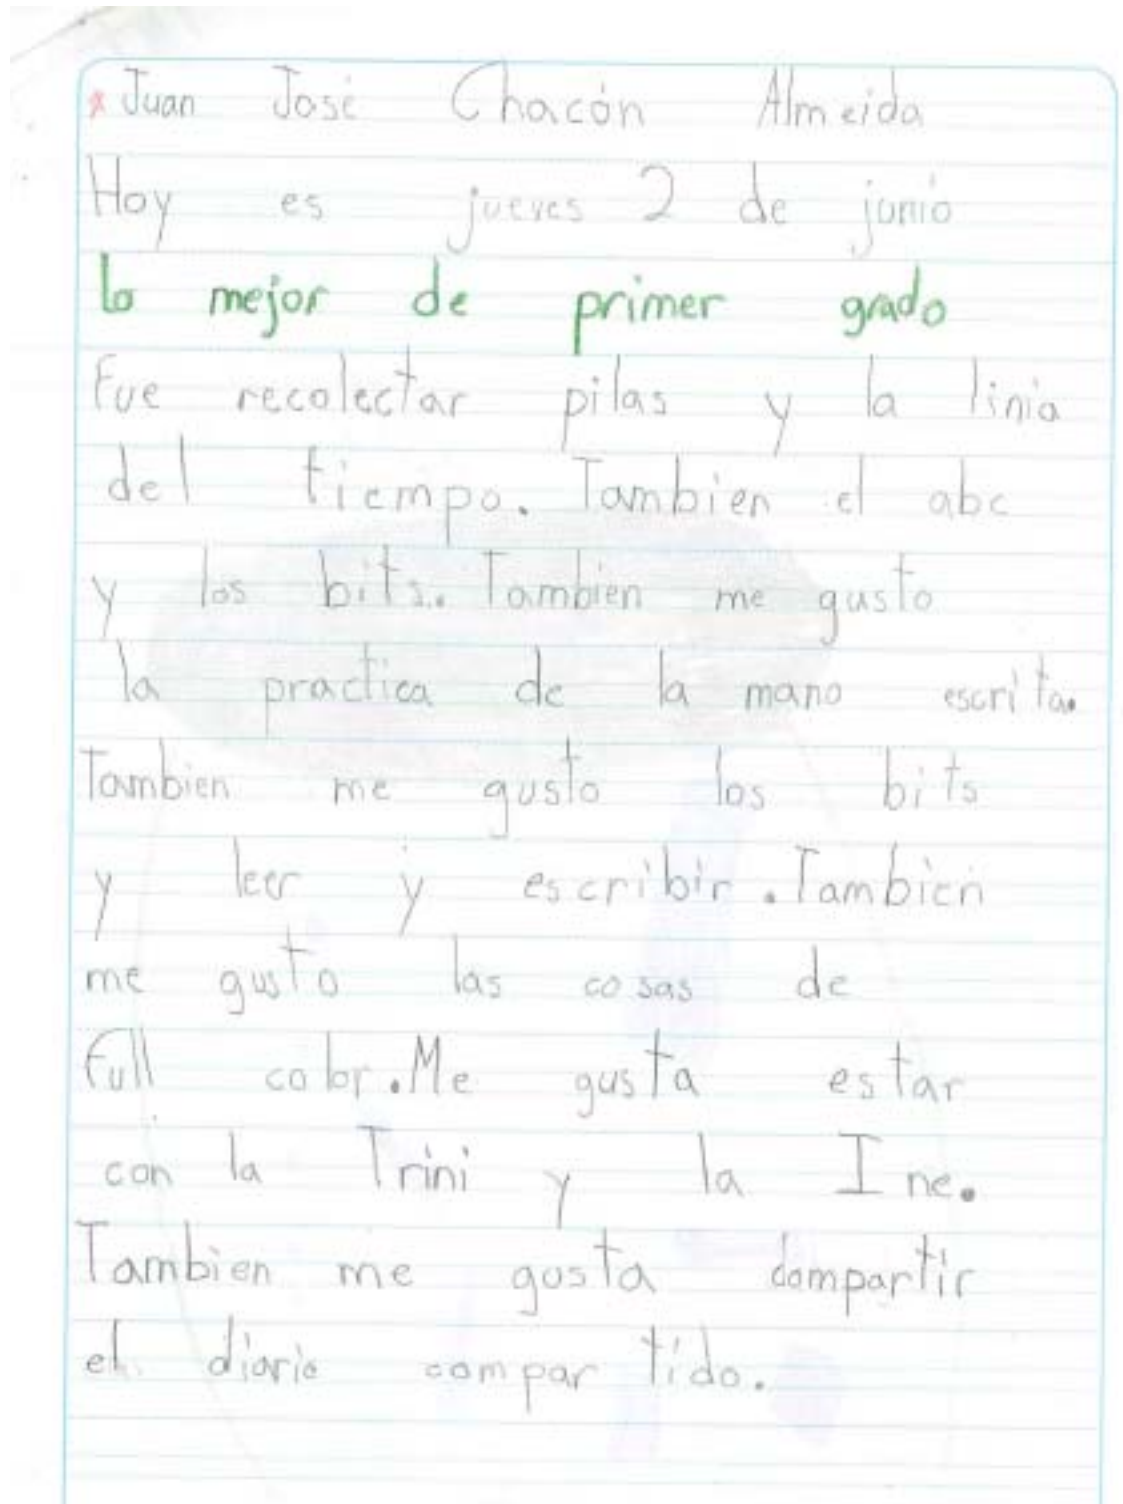 Juan José Chacón Almeida
Hoy es jueves 2 de junio
lo mejor de primer grado
Fue recolectar pilas y la linia
del tiempo. Tambien el abc
y los bits. Tambien me gusto
la practica de la mano escrita.
Tambien me gusto los bits
y leer y escribir. Tambien
me gusto las cosas de
full color. Me gusta estar
con la Trini y la Ine.
Tambien me gusta dompartir
el diario compartido.